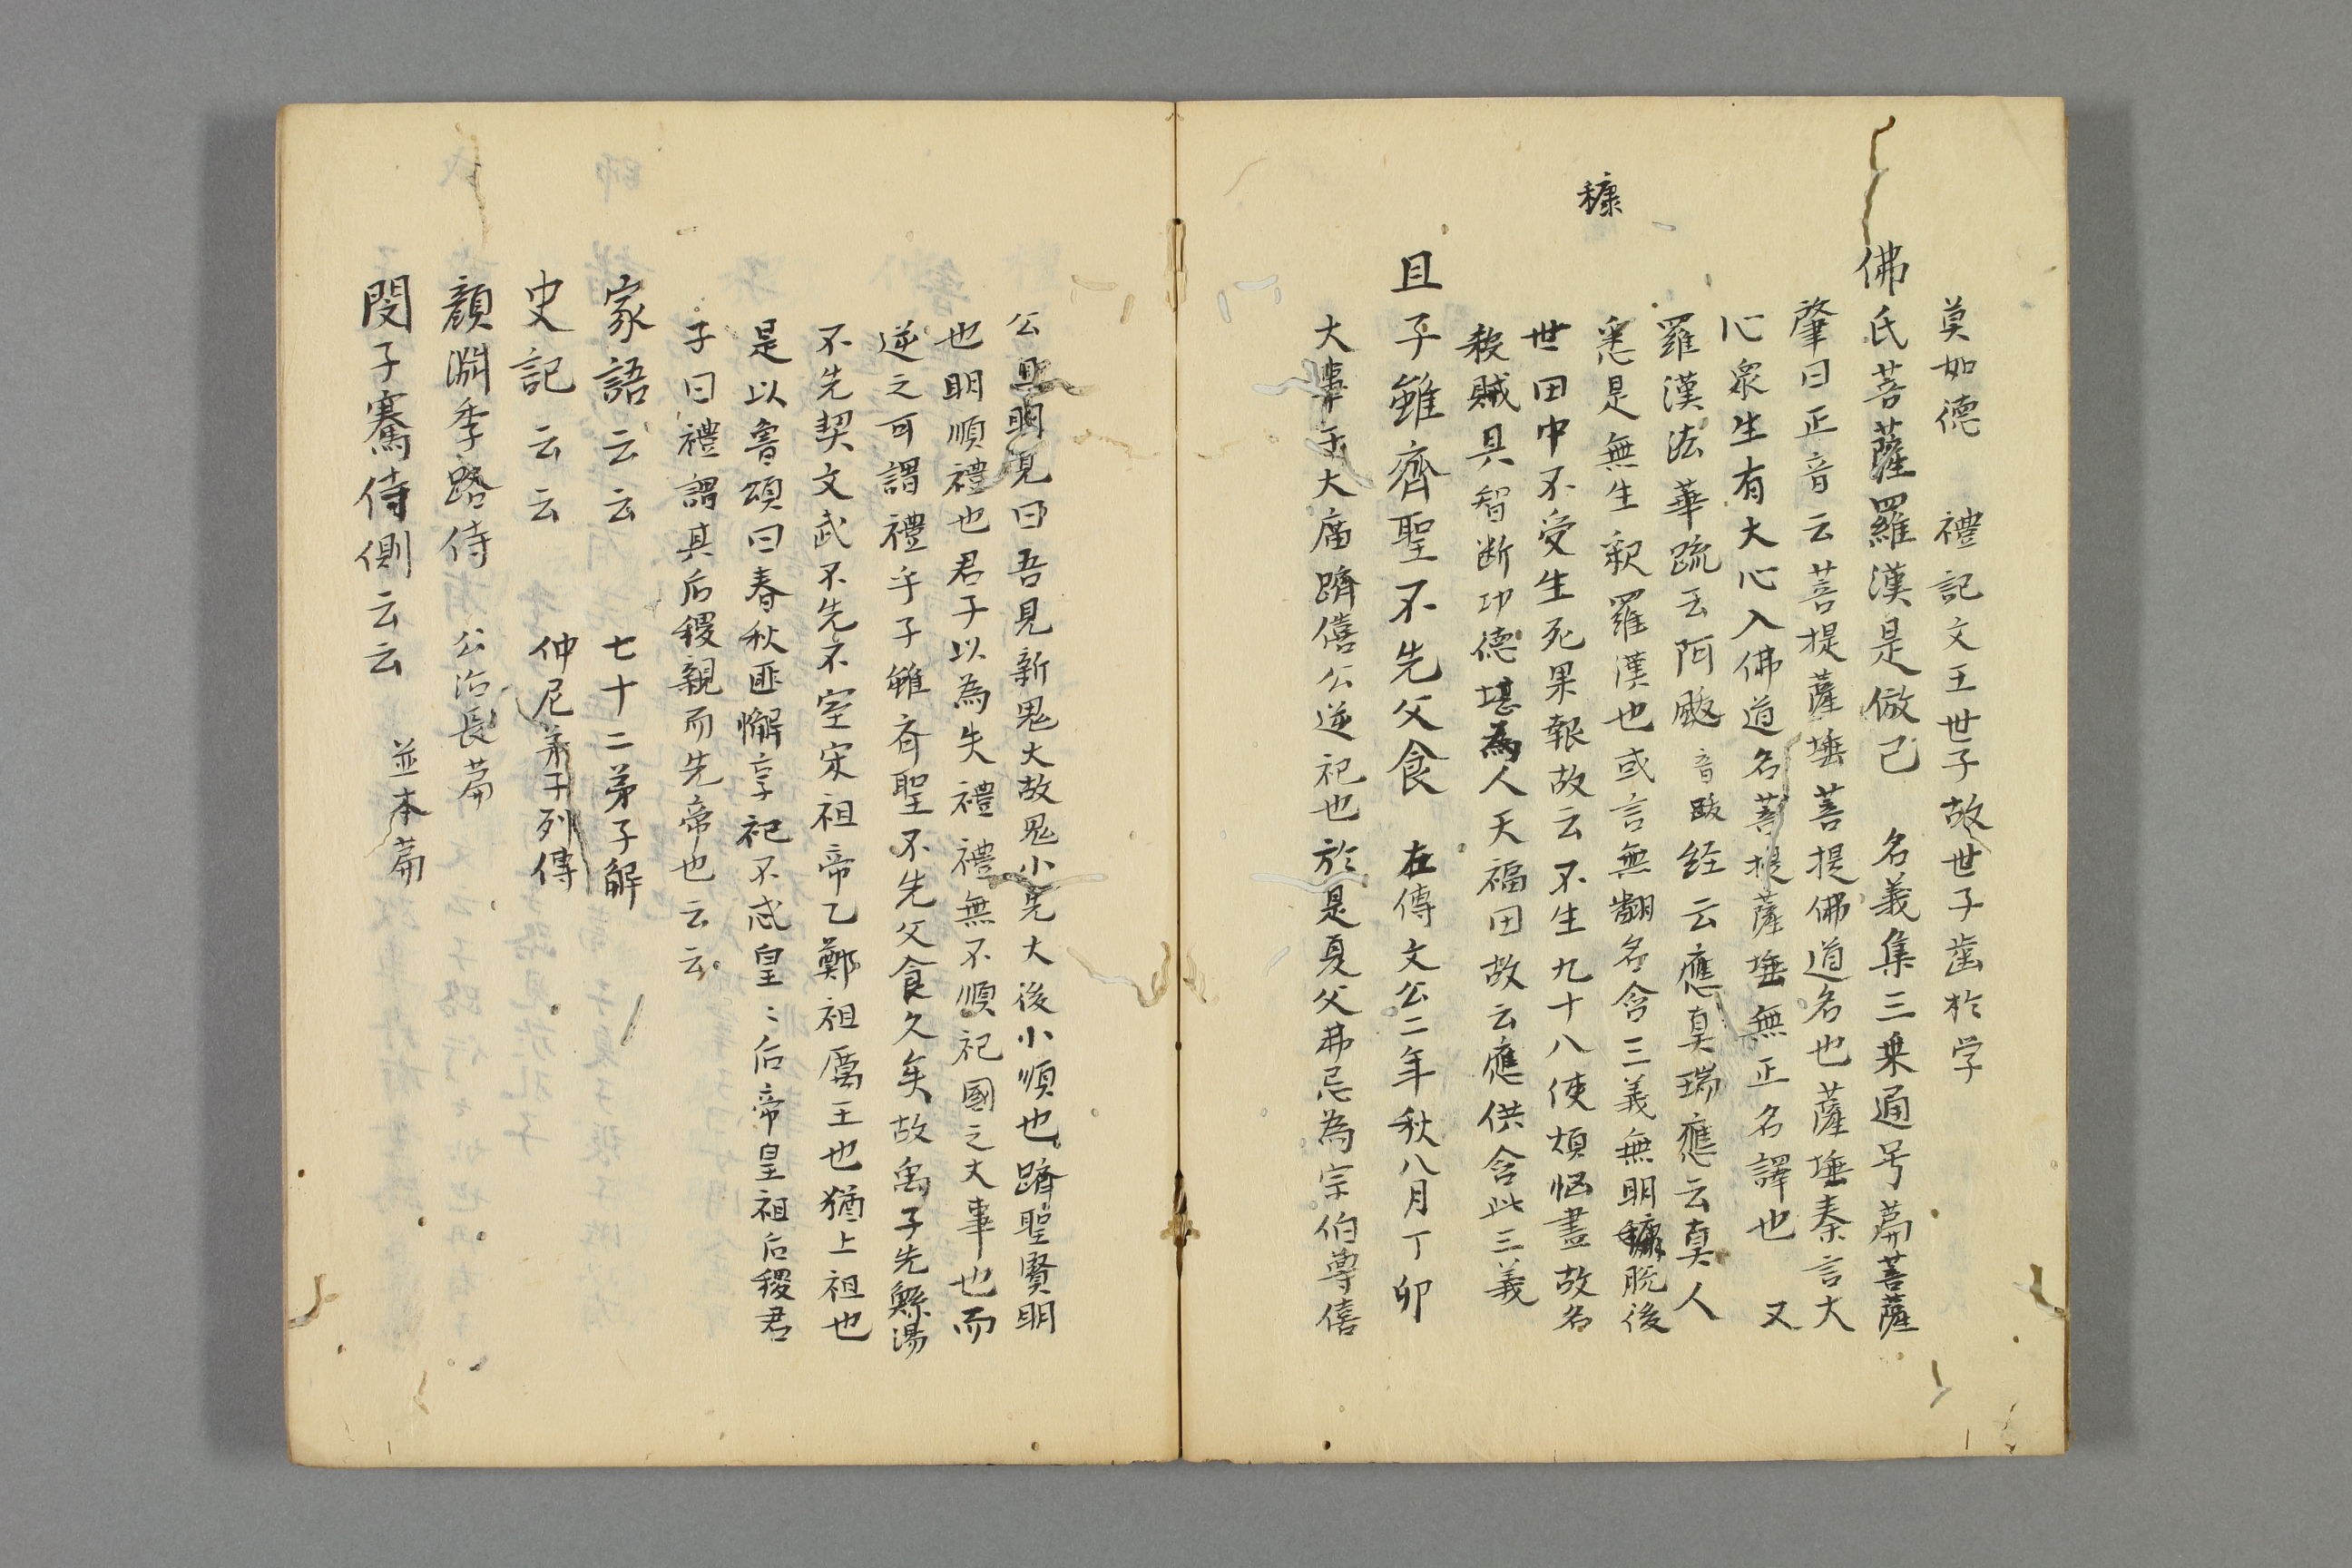 莫如德　禮記文王世子故世子歯於学
佛氏菩薩羅漢是倣已　名義集三乗通号萹菩薩
肇曰正音云菩提薩埵菩提佛道名也薩埵秦言大
心衆生有大心入佛道名菩提薩埵無正名譯也　又
羅漢法華疏云阿颰音跋経云應真瑞應云真人
悉是無生釈羅漢也或言無翻名含三義無明糠脱後
糠
世田中不受生死果報故云不生九十八使煩悩盡故名
殺賊具智断功德堪為人天福田故云應供含此三義
且子雖齊聖不先父食　在傳文公二年秋八月丁卯
大事于大庿躋僖公逆祀也於是夏父弗忌為宗伯尊僖
公且明見曰吾見新鬼大故鬼小先大後小順也躋聖賢明
也明順禮也君子以為失禮禮無不順祀國之大事也而
逆之可謂禮乎子雖斉聖不先父食久矣故禹子先鯀湯
不先契文武不先不窋宋祖帝乙鄭祖厲王也猶上祖也
是以魯頌曰春秋匪懈享祀不忒皇〻后帝皇祖后稷君
子曰禮謂其后稷親而先帝也云云
家語云云　七十二弟子解
史記云云　仲尼弟子列傳
顔淵季路侍　公治長萹
閔子騫侍側云云　並本萹